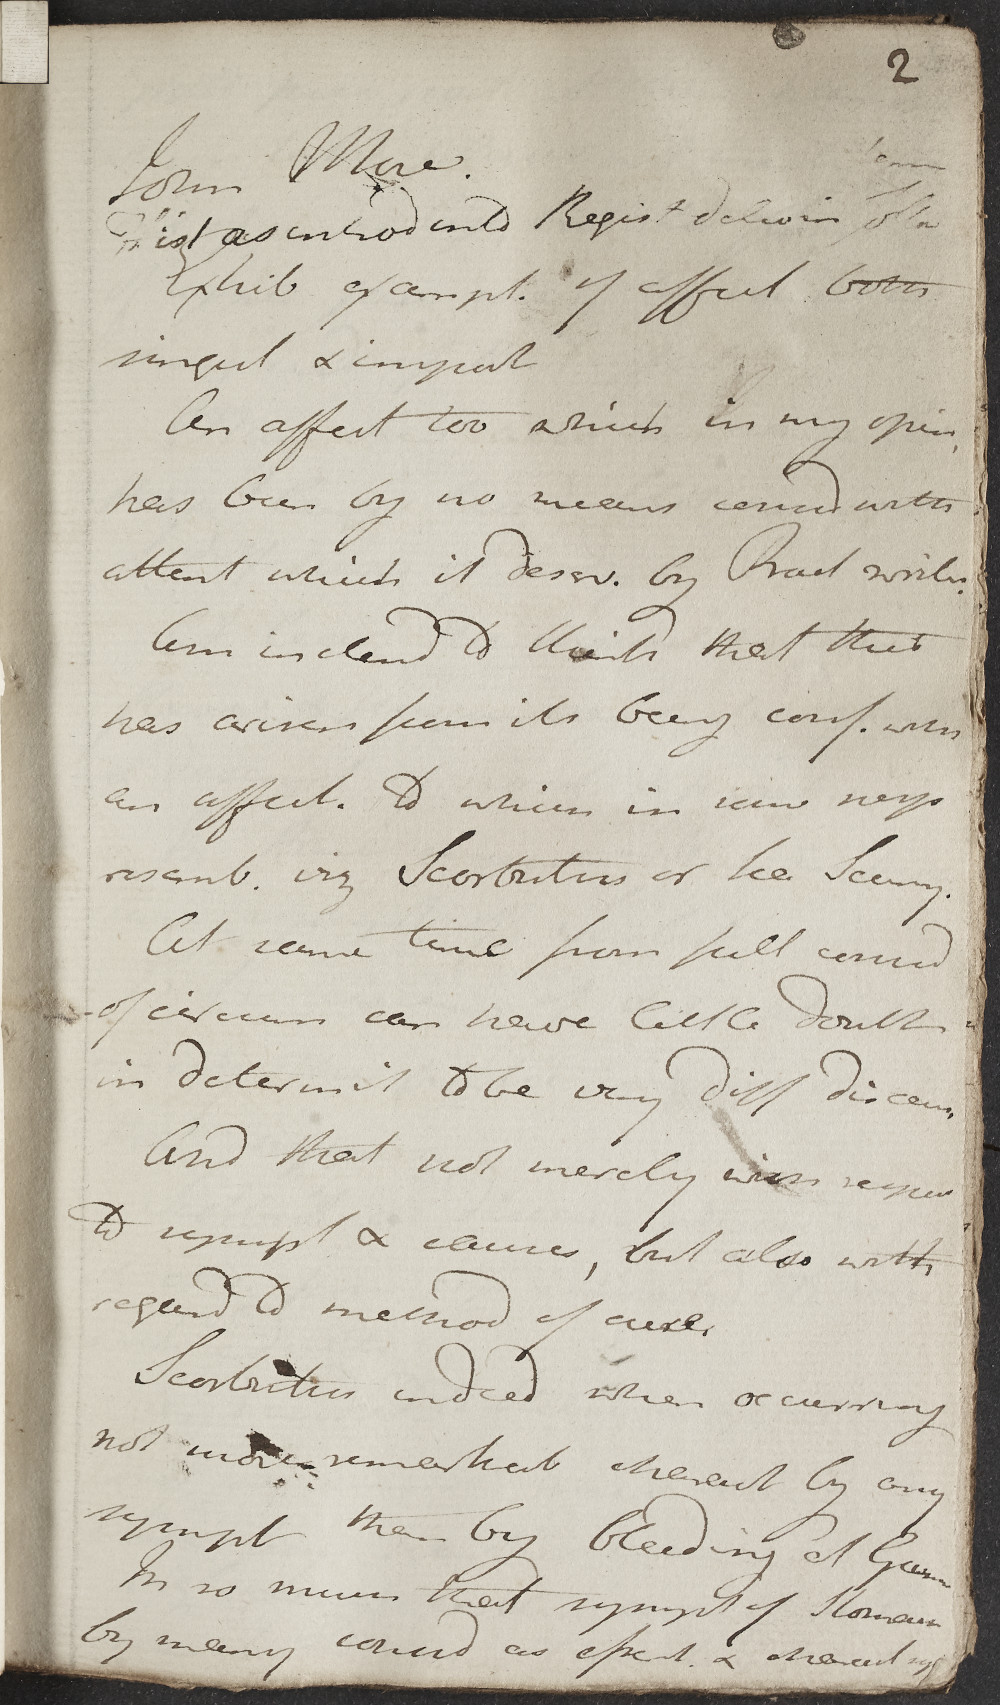 2
John More.
Regist
Exhib exampl. of affect both
singul & import
An affect too which in my opin
has been by no means consid with
attent which it deserv. by Pract writer.
Am inclend to think that this
has arisen from its being conf. with
an affect. to which in
resemb. viz Scorbutus or Sea Scurvy.
At same time from full consid
of circum can have little doubt
in determ it to be very diff diseas
And that not merely with respec
to sympt & causes, but also with
regard to method of cure.
Scorbutus indeed when occurring
not more remarkab charact by any
sympt than by bleeding at Gums
In so much that sympt of
by many consid as & charact